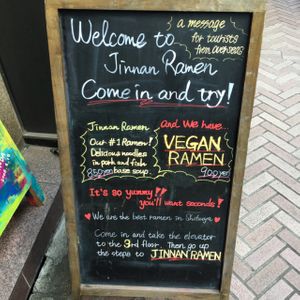 a message
for tourists
from overseas
Welcome to
Jinnan Ramen
Come in and try!
Jinnan Ramen
Our #1 Ramen!
Delicious noodles
in pork and fish
850yen base soup.
and We have
VEGAN
RAMEN
900yen
It's so yummy!!
you'll want seconds!
We are the best ramen in Shibuya
Come in and take the elevator
to the 3rd floor. Then go up
the steps to JINNAN RAMEN